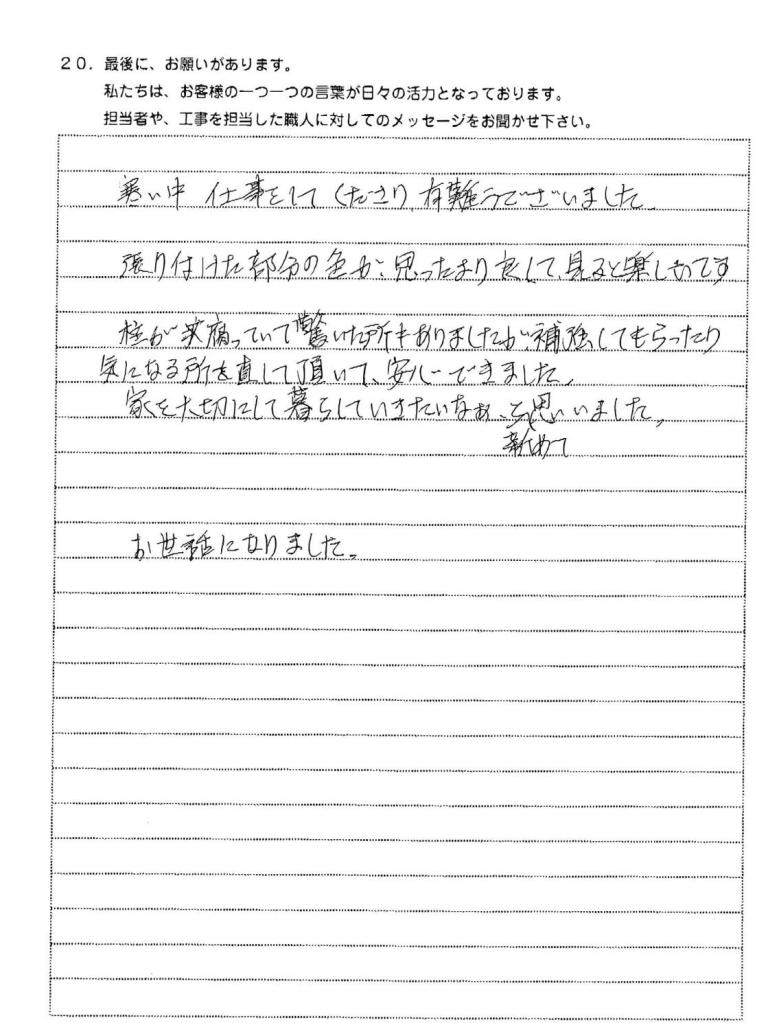 20．最後に、お願いがあります。
私たちは、お客様の一つ一つの言葉が日々の活力となっております。
担当者や、工事を担当した職人に対してのメッセージをお聞かせ下さい。
寒い中 仕事をして くださり、有難うございました。
張り付けた部分の色が、思ったより良くて、見ると楽しいです
柱が腐っていて驚いた所もありましたが、補強してもらったり
気になる所を直して頂いて、安心できました。
家を大切にして暮らしていきたいなぁ、と思いました。
改めて
お世話になりました。